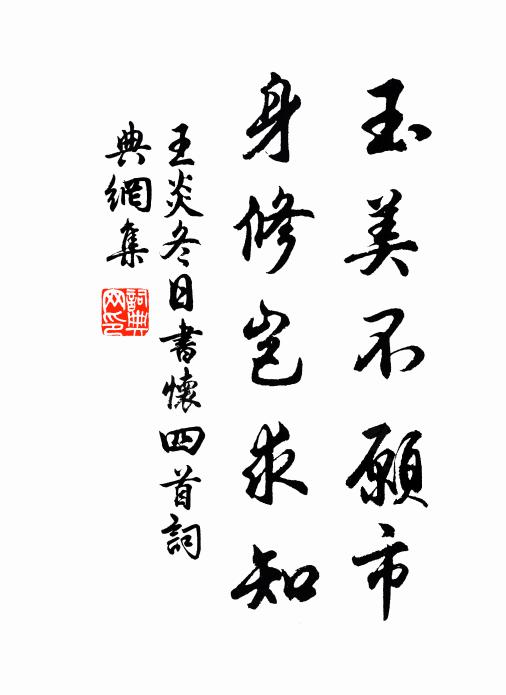 玉美不願市
身修豈求知
王炎冬日書懷四首詞
典網集
詞典網印